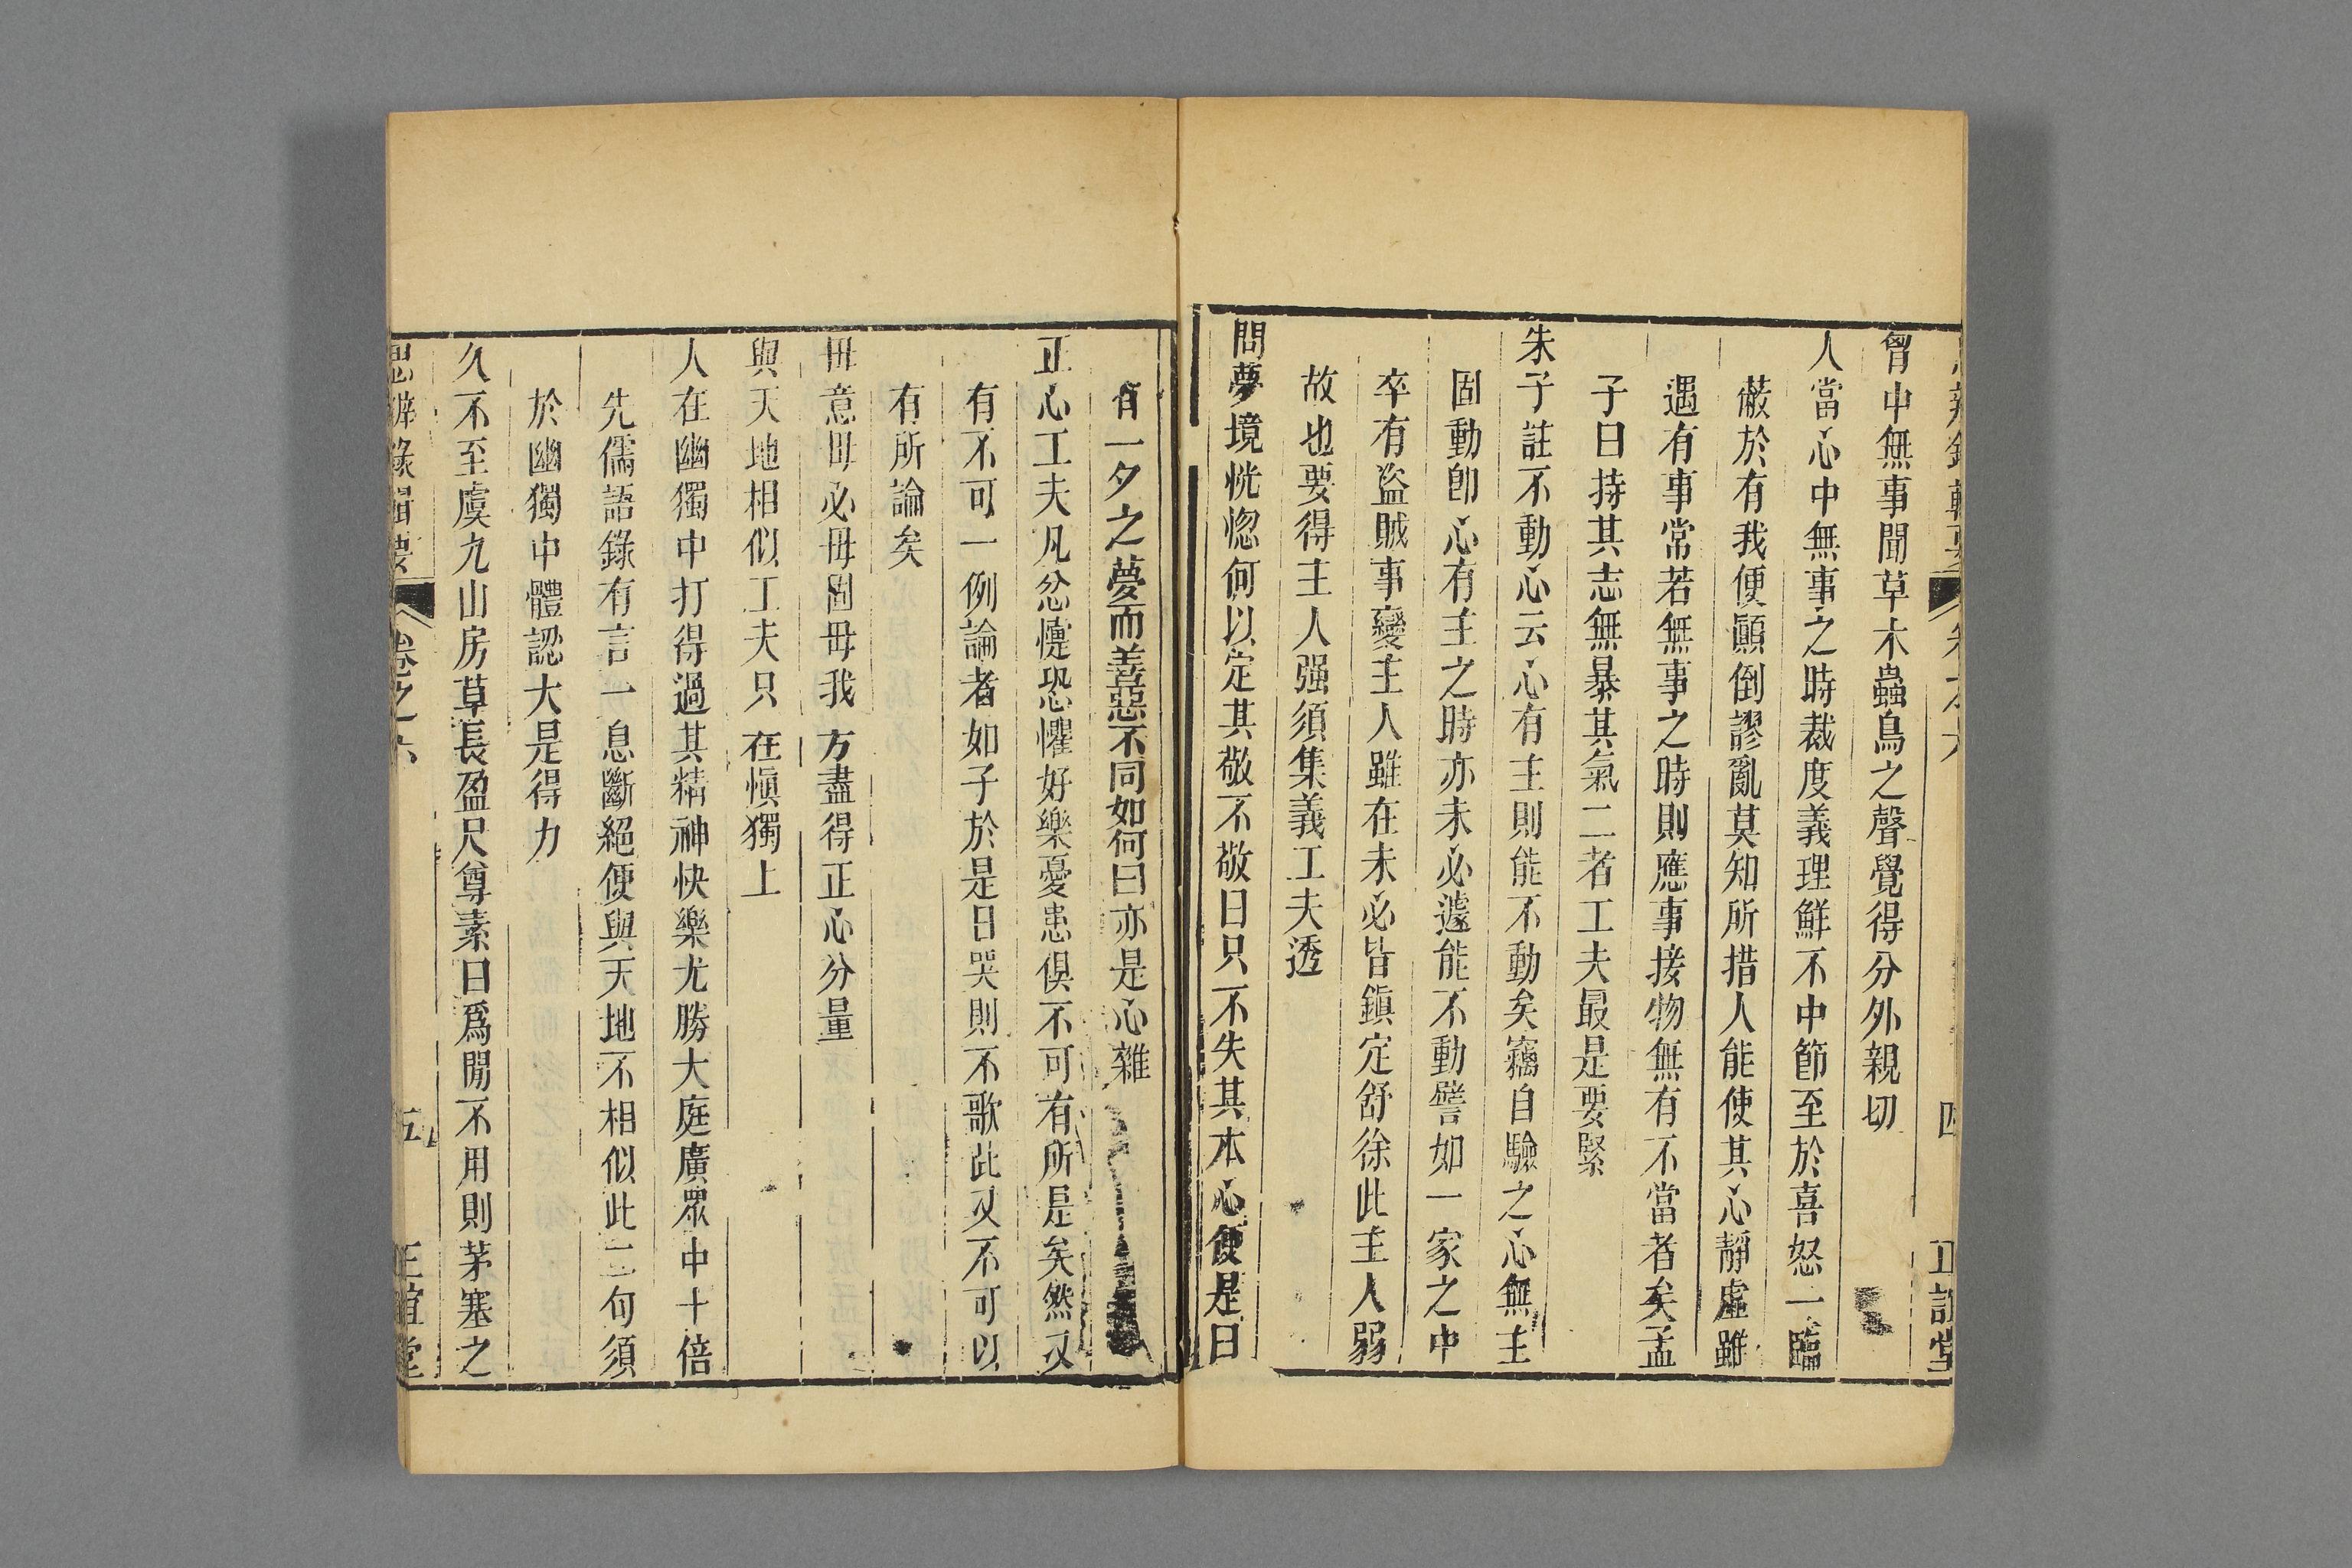 思辨錄輯要 卷之六 四 正誼堂
胷中無事聞草木蟲鳥之聲覺得分外親切
人當心中無事之時裁度義理鮮不中節至於喜怒一臨
蔽於有我便顚倒謬亂莫知所措人能使其心靜虛雖
遇有事常若無事之時則應事接物無有不當者矣孟
子曰持其志無暴其氣二者工夫最是要緊
朱子註不動心云心有主則能不動矣竊自驗之心無主
固動卽心有主之時亦未必遽能不動譬如一家之中
卒有盜賊事變主人雖在未必皆鎭定舒徐此主人弱
故也要得主人强須集義工夫透
問夢境恍惚何以定其敬不敬曰只不失其本心便是曰
有一夕之夢而善惡不同如何曰亦是心雜
正心工夫凡忿懥恐懼好樂憂患俱不可有所是矣然又
有不可一例論者如子於是日哭則不歌此又不可以
有所論矣
毋意毋必毋固毋我方盡得正心分量
與天地相似工夫只在愼獨上
人在幽獨中打得過其精神快樂尤勝大庭廣眾中十倍
先儒語錄有言一息斷絕便與天地不相似此二句須
於幽獨中體認大是得力
久不至虞九山房草長盈尺尊素曰爲閒不用則茅塞之
思辨錄輯要 卷之六 五 正誼堂